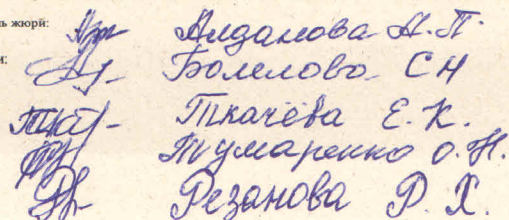 ь жюри:
Алданова А. П.
и:
Болелова С Н
Ткачёва Е. К.
Тумаренко О. Н.
Резанова Р. Х.